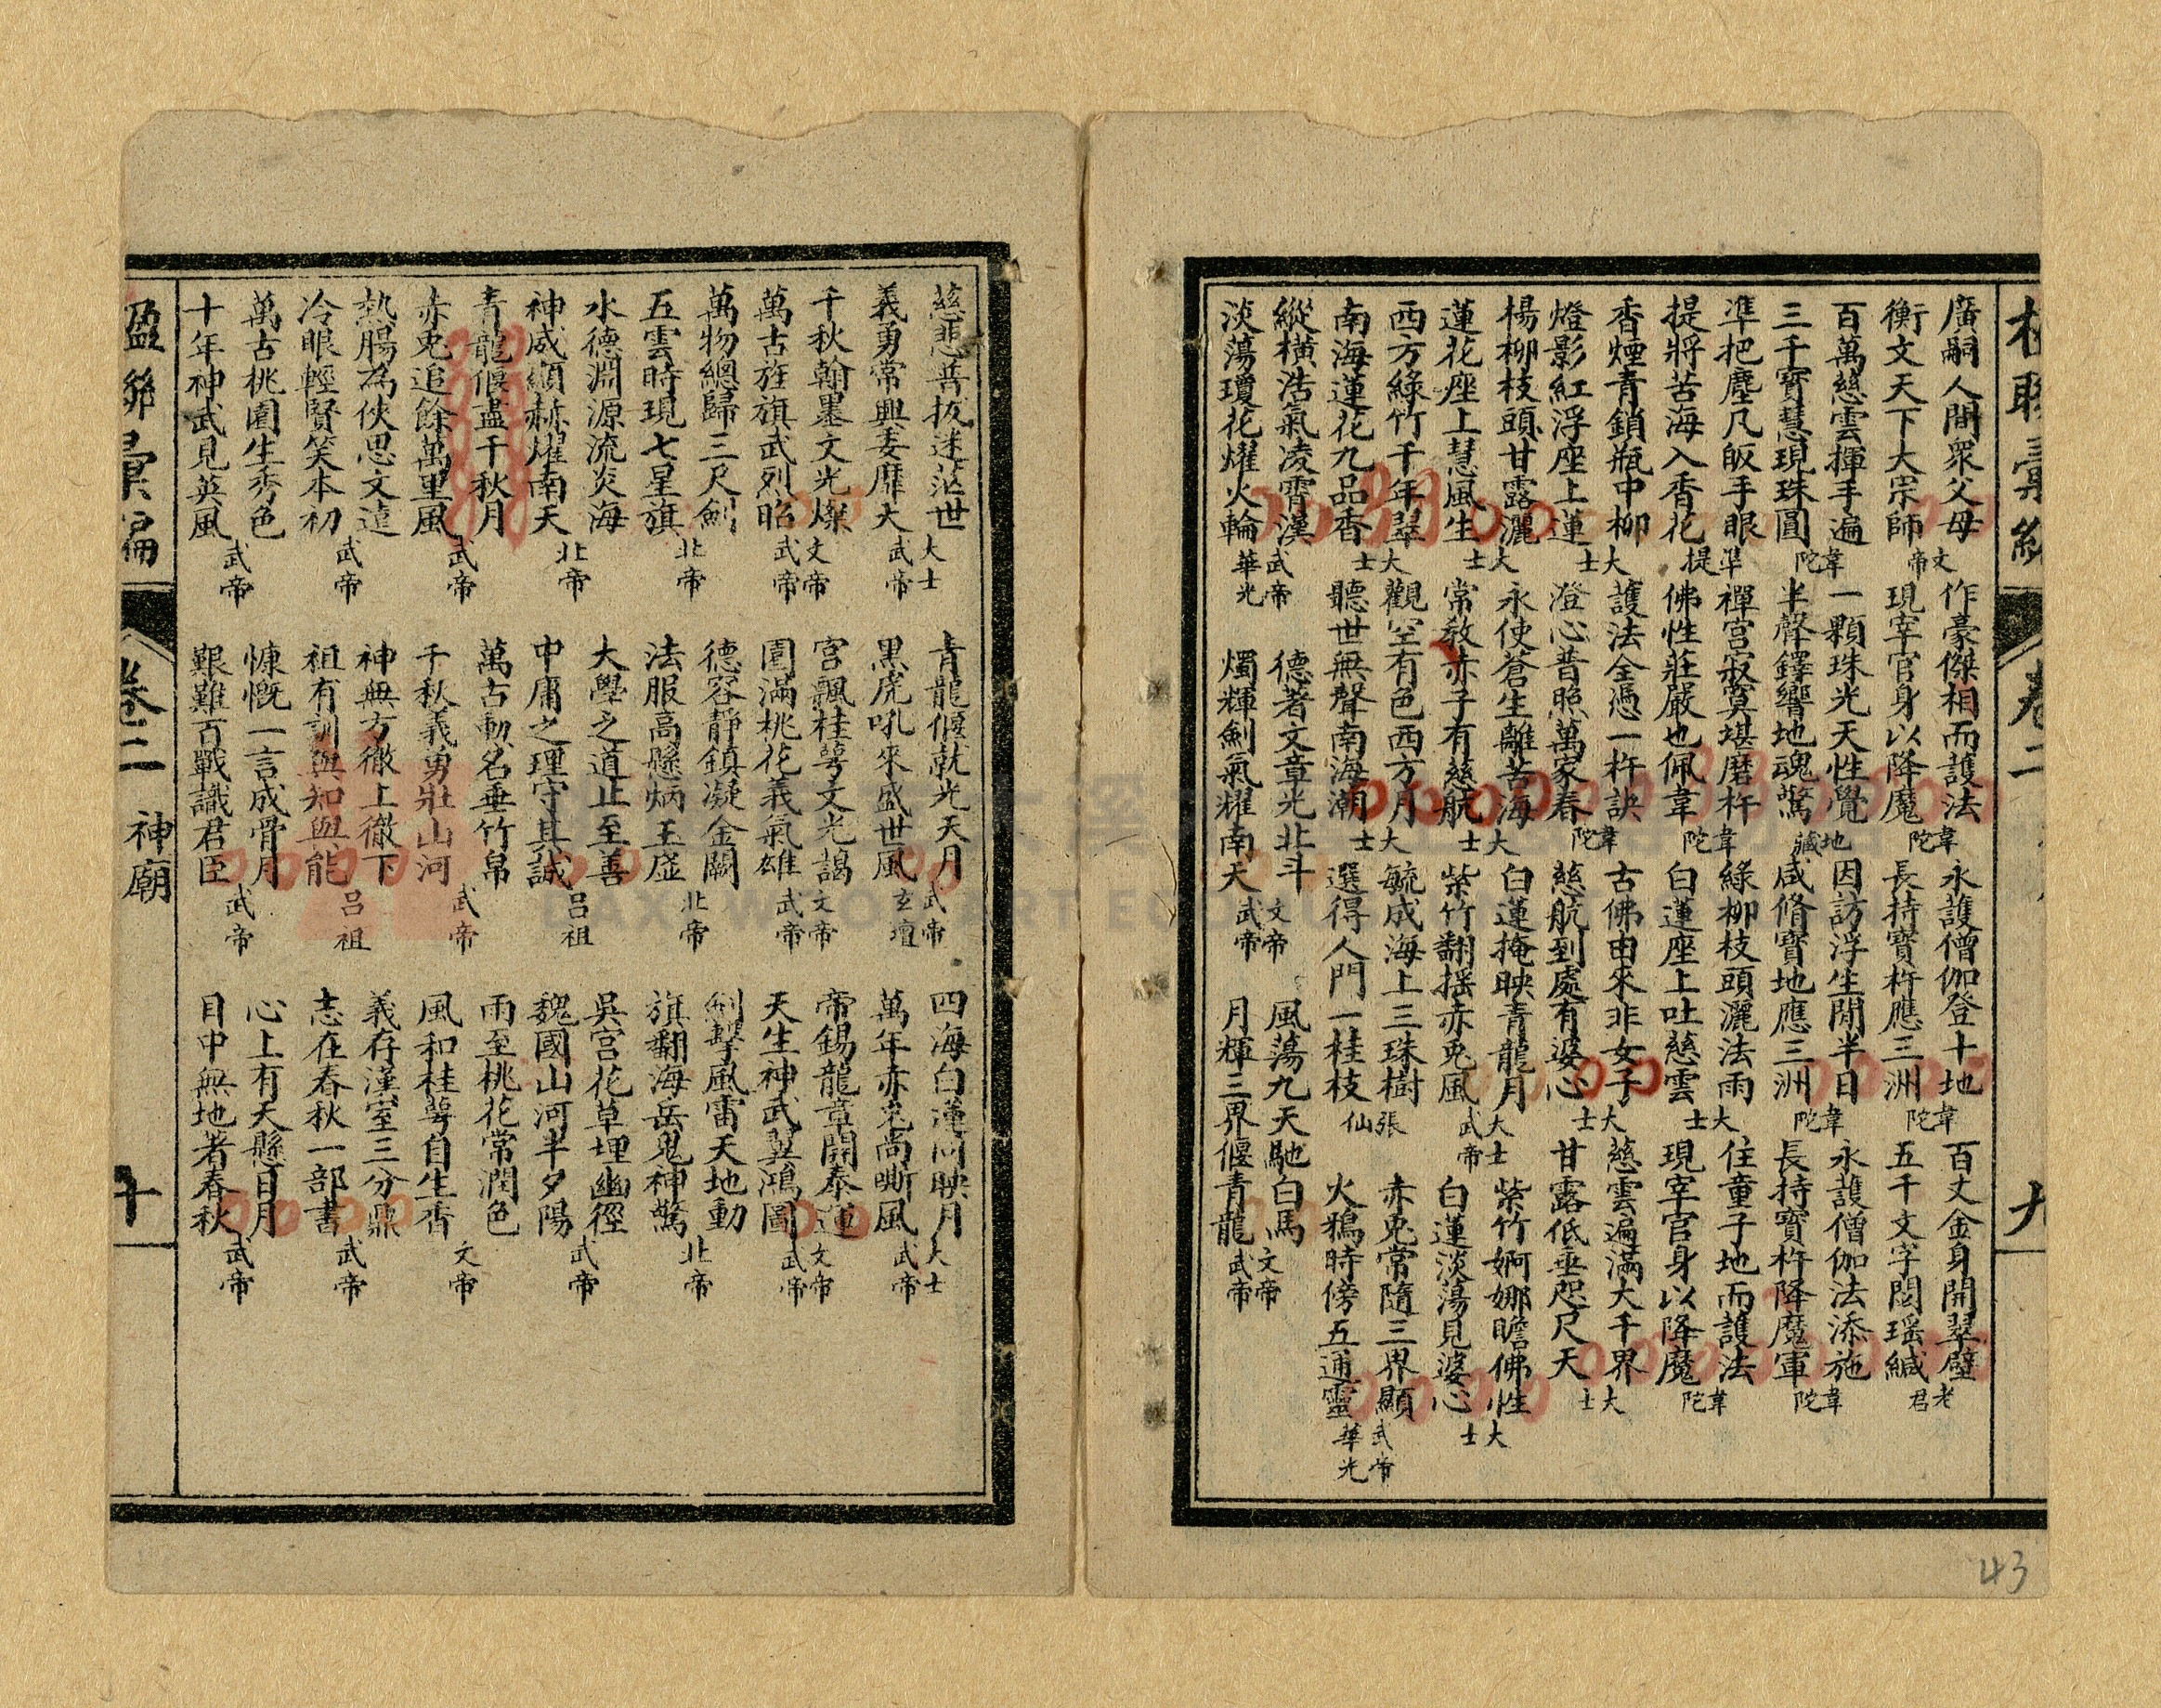 廣嗣人間衆父母
衡文天下大宗師
文帝
作豪傑相而護法
現宰官身以降魔
韋陀
永護僧伽登十地
長持寶杵應三洲
韋陀
百丈金身開翠壁
五千文字閟瑶緘
老君
百萬慈雲揮手遍
三千寶慧現珠圓
韋陀
一顆珠光天性覺
半聲鐸響地魂驚
地藏
因訪浮生閒半日
咸脩寳地應三洲
韋陀
永護僧伽法添施
長持寶杵降魔軍
韋陀
準把塵凡皈手眼
提將苦海入香花
準提
禪宫寂寞堪磨杵
佛性莊嚴也佩韋
韋陀
綠柳枝頭灑法雨
白蓮座上吐慈雲
大士
住童子地而護法
現宰官身以降魔
韋陀
香煙青鎖瓶中柳
燈影紅浮座上蓮
大士
護法全憑一杵訣
澄心普照萬家春
韋陀
古佛由來非女子
慈航到處有婆心
大士
慈雲遍滿大千界
甘露低垂咫尺天
大士
楊柳枝頭甘露灑
蓮花座上慧風生
大士
永使蒼生離苦海
常教赤子有慈航
大士
白蓮掩映青龍月
紫竹翻摇赤兎風
大士
武帝
紫竹婀娜瞻佛性
白蓮淡蕩見婆心
大士
西方綠竹千年翠
南海蓮花九品香
大士
觀空有色西方月
聽世無聲南海潮
大士
毓成海上三珠樹
選得人門一桂枝
張仙
赤兎常隨三界顯
火鴉時傍五通靈
武帝
華光
縱横浩氣凌霄漢
淡蕩瓊花燿火輪
武帝
華光
德著文章光北斗
燭輝劍氣耀南天
文帝
武帝
風蕩九天馳白馬
月輝三界偃青龍
文帝
武帝
卷二
九
慈悲普拔迷茫世
義勇常興委靡大
大士
武帝
青龍偃就光天月
黑虎吼來盛世風
武帝
玄壇
四海白蓮同映月
萬年赤兎尚嘶風
大士
武帝
千秋翰墨文光燦
萬古旌旗武烈昭
文帝
武帝
宫飄桂萼文光藹
園滿桃花義氣雄
文帝
武帝
帝錫龍章開泰運
天生神武翼鴻圖
文帝
武帝
萬物總歸三尺劍
五雲時現七星旗
北帝
德容静鎮凝金闕
法服高懸炳玉虛
北帝
劍擊風雷天地動
旗翻海岳鬼神驚
北帝
水德淵源流炎海
神威顯赫燿南天
北帝
大學之道止至善
中庸之理守其誠
吕祖
吴宫花草埋幽徑
魏國山河半夕陽
武帝
青龍偃盡千秋月
赤兎追餘萬里風
武帝
萬古勲名垂竹帛
千秋義勇壯山河
武帝
雨至桃花常潤色
風和桂萼自生香
文帝
熱腸為俠思文遠
冷眼輕賢笑本初
武帝
神無方徹上徹下
祖有訓與知與能
吕祖
義存漢室三分鼎
志在春秋一部書
武帝
萬古桃園生秀色
十年神武見英風
武帝
慷慨一言成骨月
艱難百戰識君臣
武帝
心上有天懸日月
目中無地著春秋
武帝
楹聯彙編
卷二
神廟
十
43